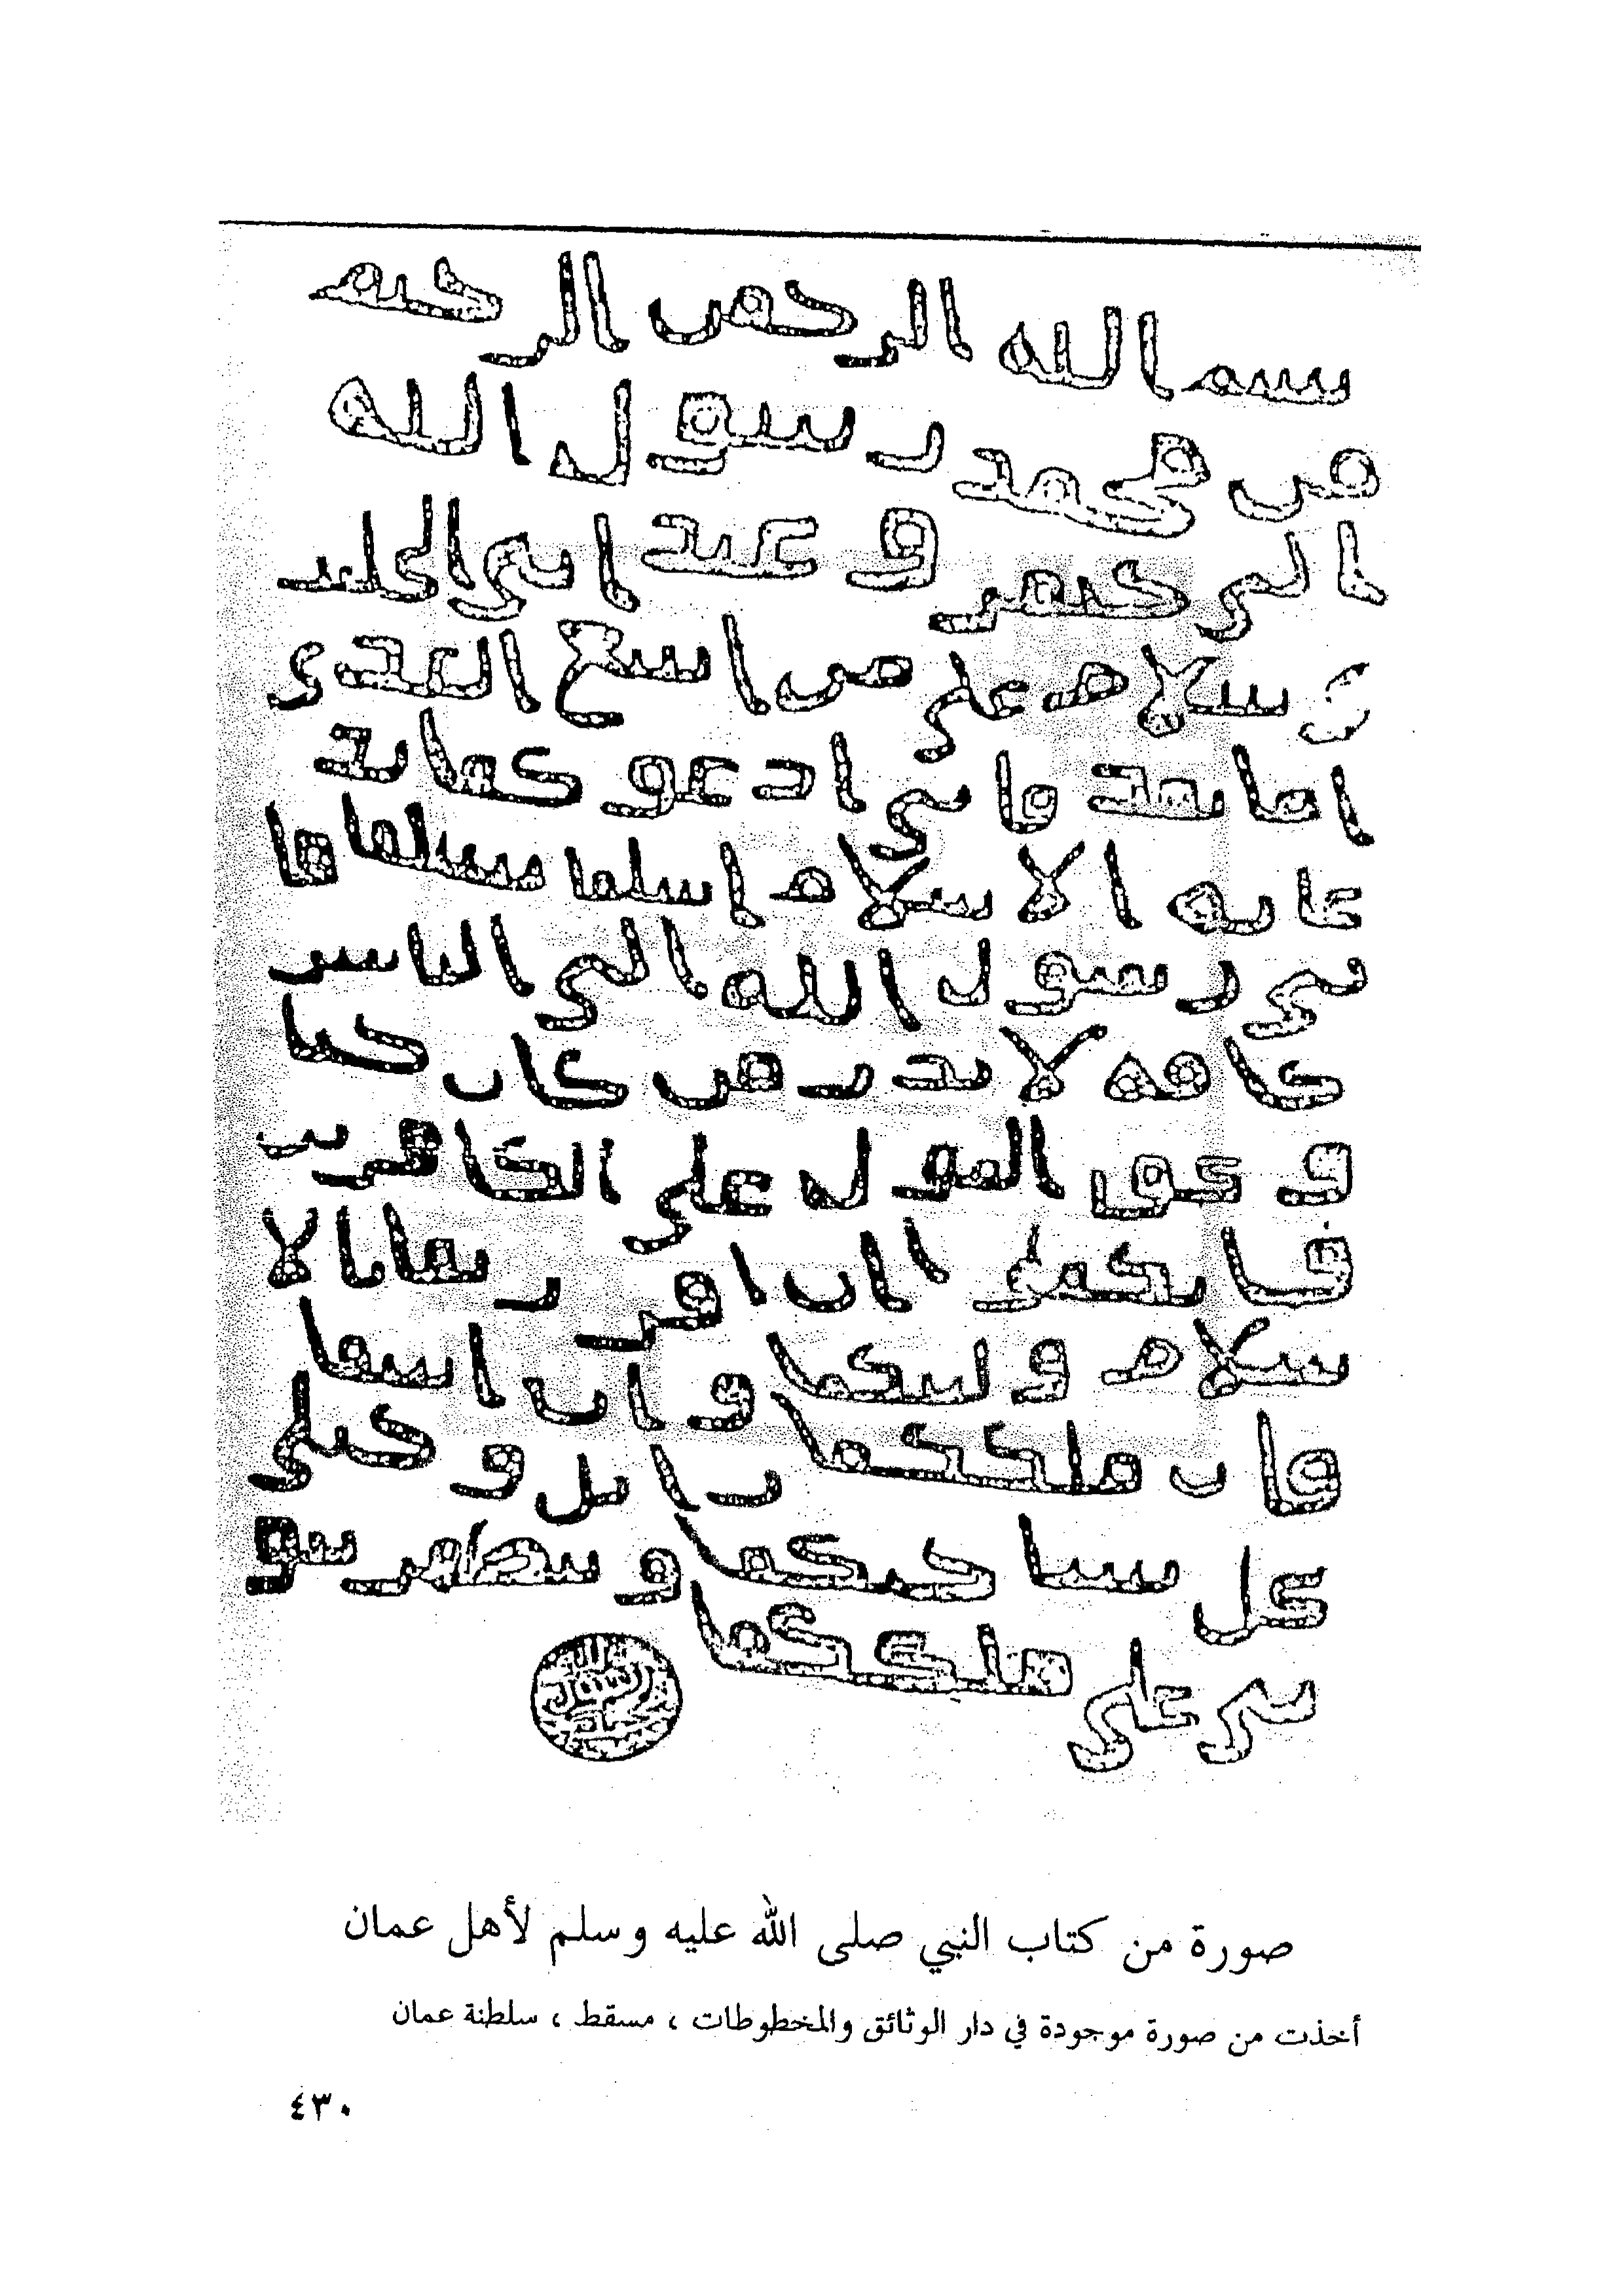 بسم الله الرحمن الرحيم
من محمد رسول الله
الى جيفر وعبد ابني الجلند
ى سلام على من اتبع الهدى
اما بعد فاني ادعوكما بد
عايه الاسلام اسلما تسلما فا
ني رسول الله الى الناس
كافه لانذر من كان حيا
ويحق القول على الكافرين
فانكما ان اقررتما بالا
سلام وليتكما وان ابيتما
فان ملككما زايل وخيلي
تحل بساحتكما وتظهر نبو
تي على ملككما
الله
رسول
محمد
صورة من كتاب النبي صلى الله عليه وسلم لأهل عمان
أخذت من صورة موجودة في دار الوثائق والمخطوطات ، مسقط ، سلطنة عمان
٤٣٠